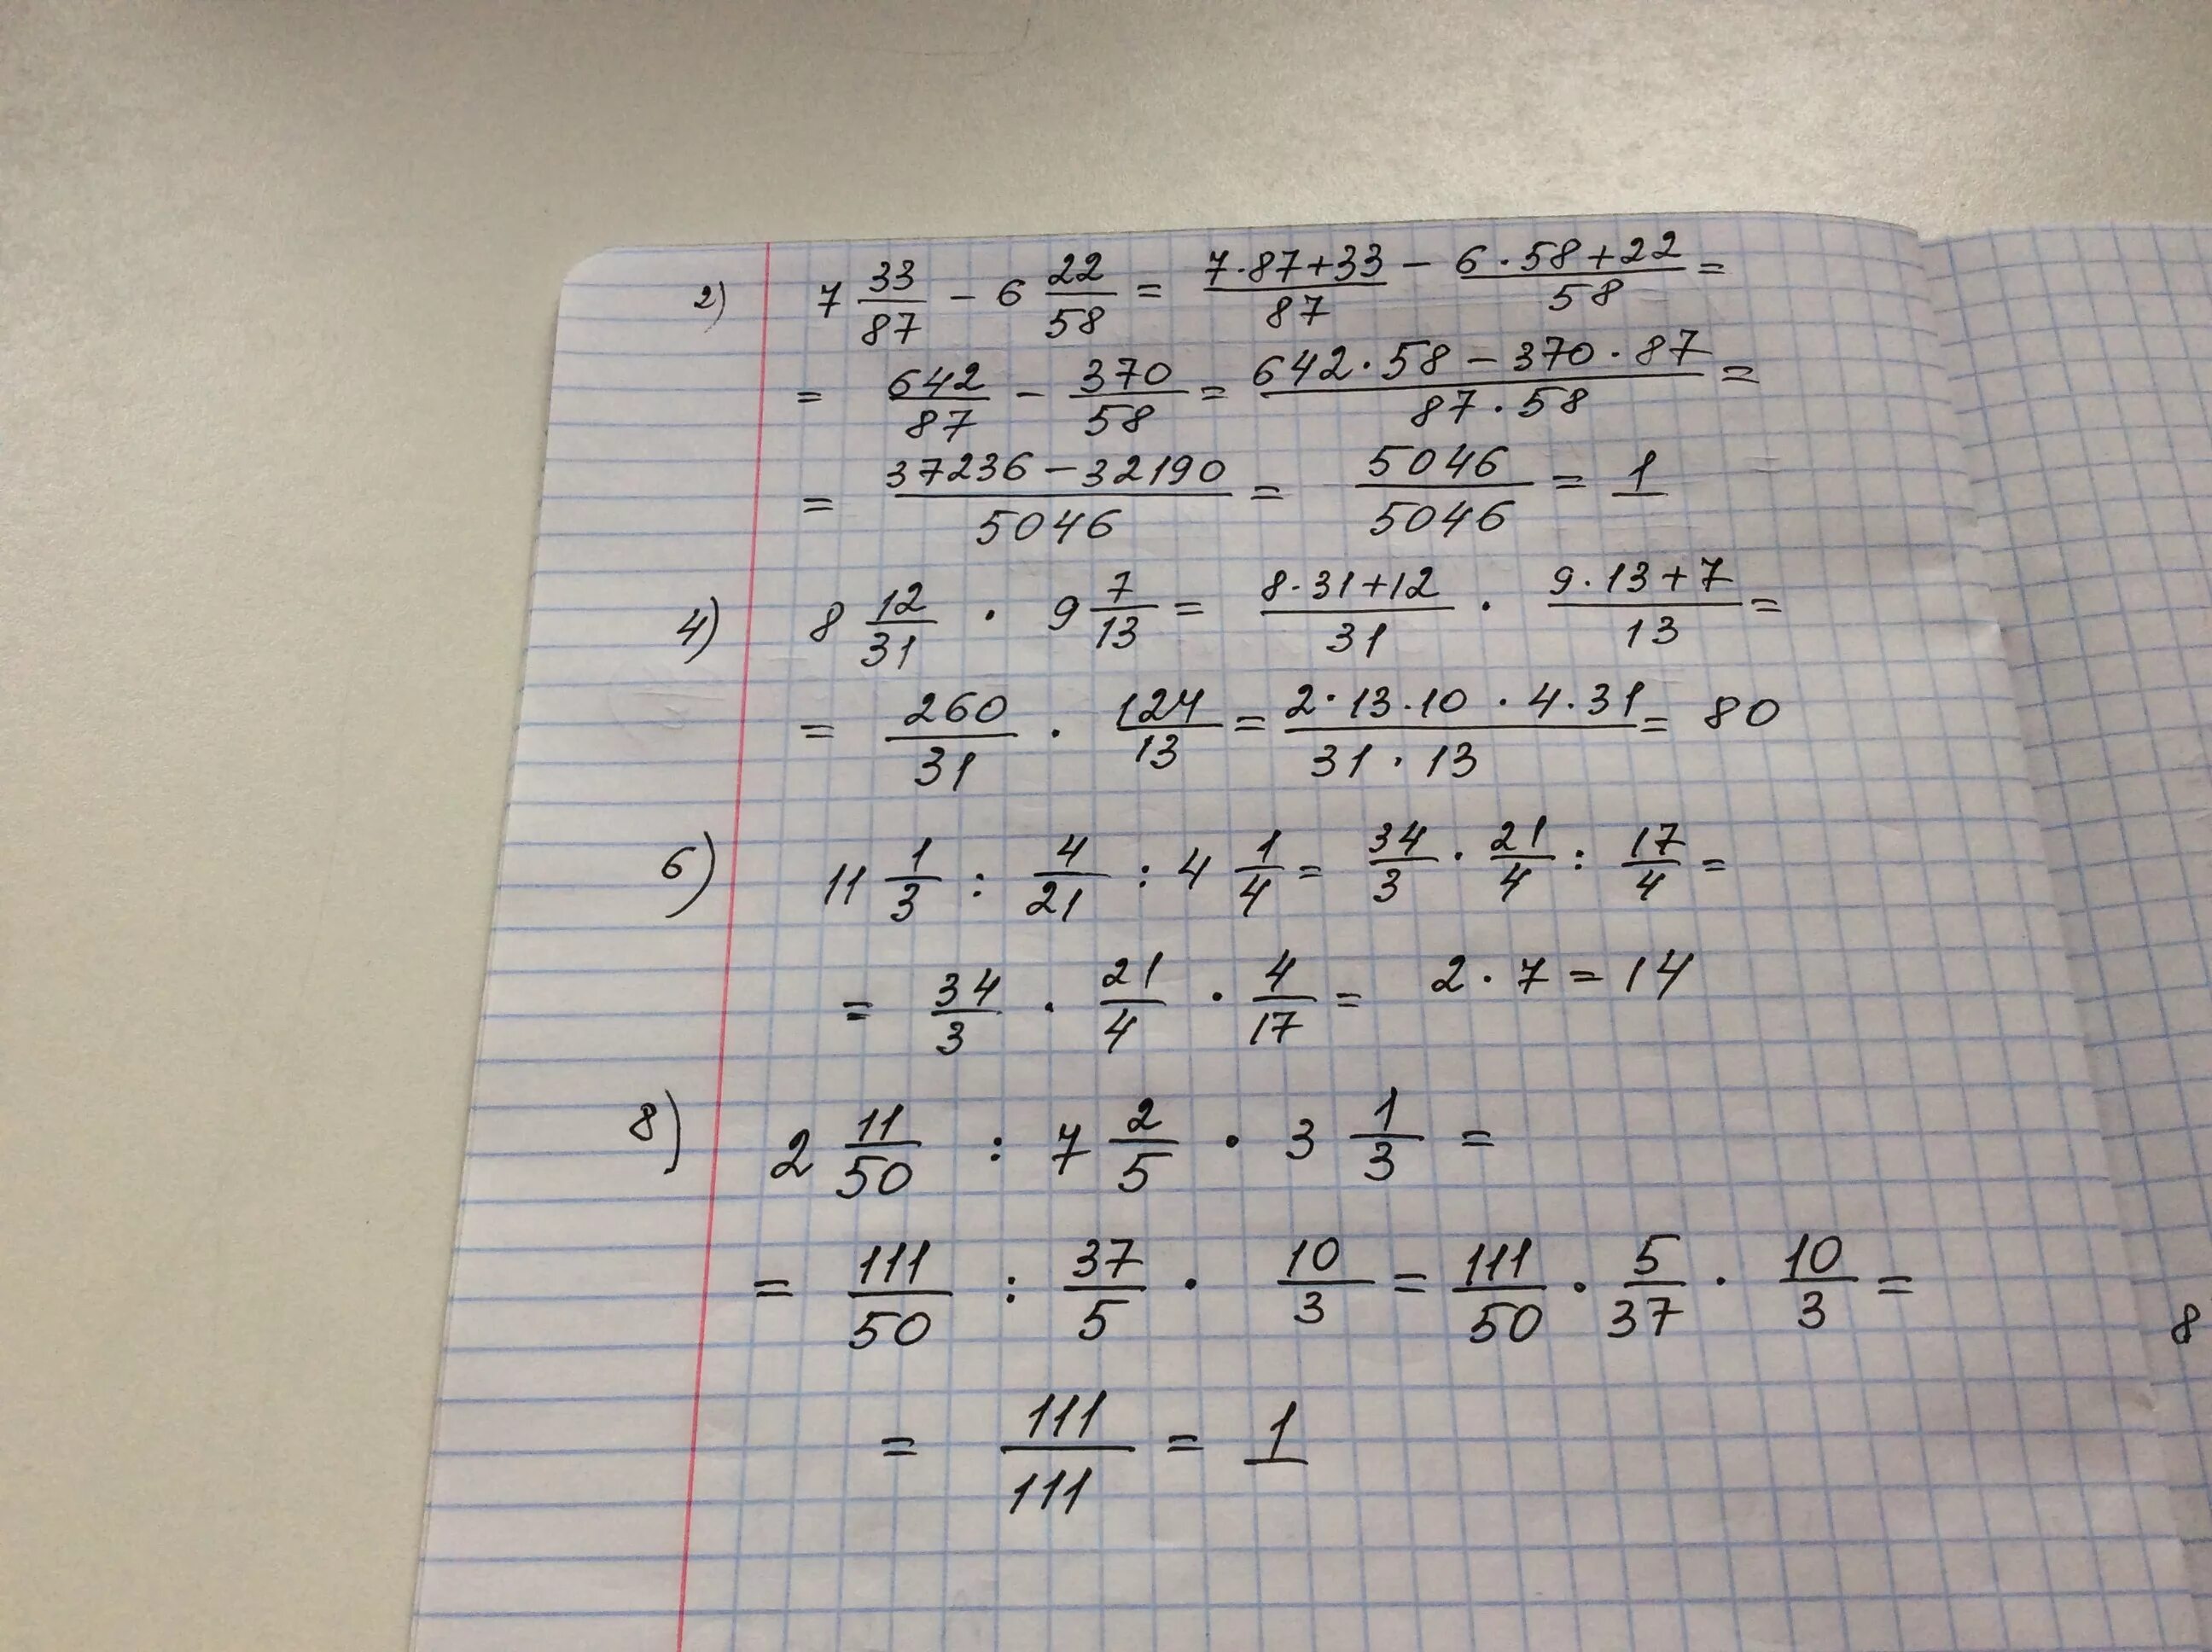 2) 7 33/87 − 6 22/58 = (7·87+33)/87 − (6·58+22)/58 =
= 642/87 − 370/58 = (642·58 − 370·87)/(87·58) =
= (37236 − 32190)/5046 = 5046/5046 = 1
4) 8 12/31 · 9 7/13 = (8·31+12)/31 · (9·13+7)/13 =
= 260/31 · 124/13 = (2·13·10·4·31)/(31·13) = 80
6) 11 1/3 : 4/21 : 4 1/4 = 34/3 · 21/4 : 17/4 =
= 34/3 · 21/4 · 4/17 = 2·7 = 14
8) 2 11/50 : 7 2/5 · 3 1/3 =
= 111/50 : 37/5 · 10/3 = 111/50 · 5/37 · 10/3 =
= 111/111 = 1
8